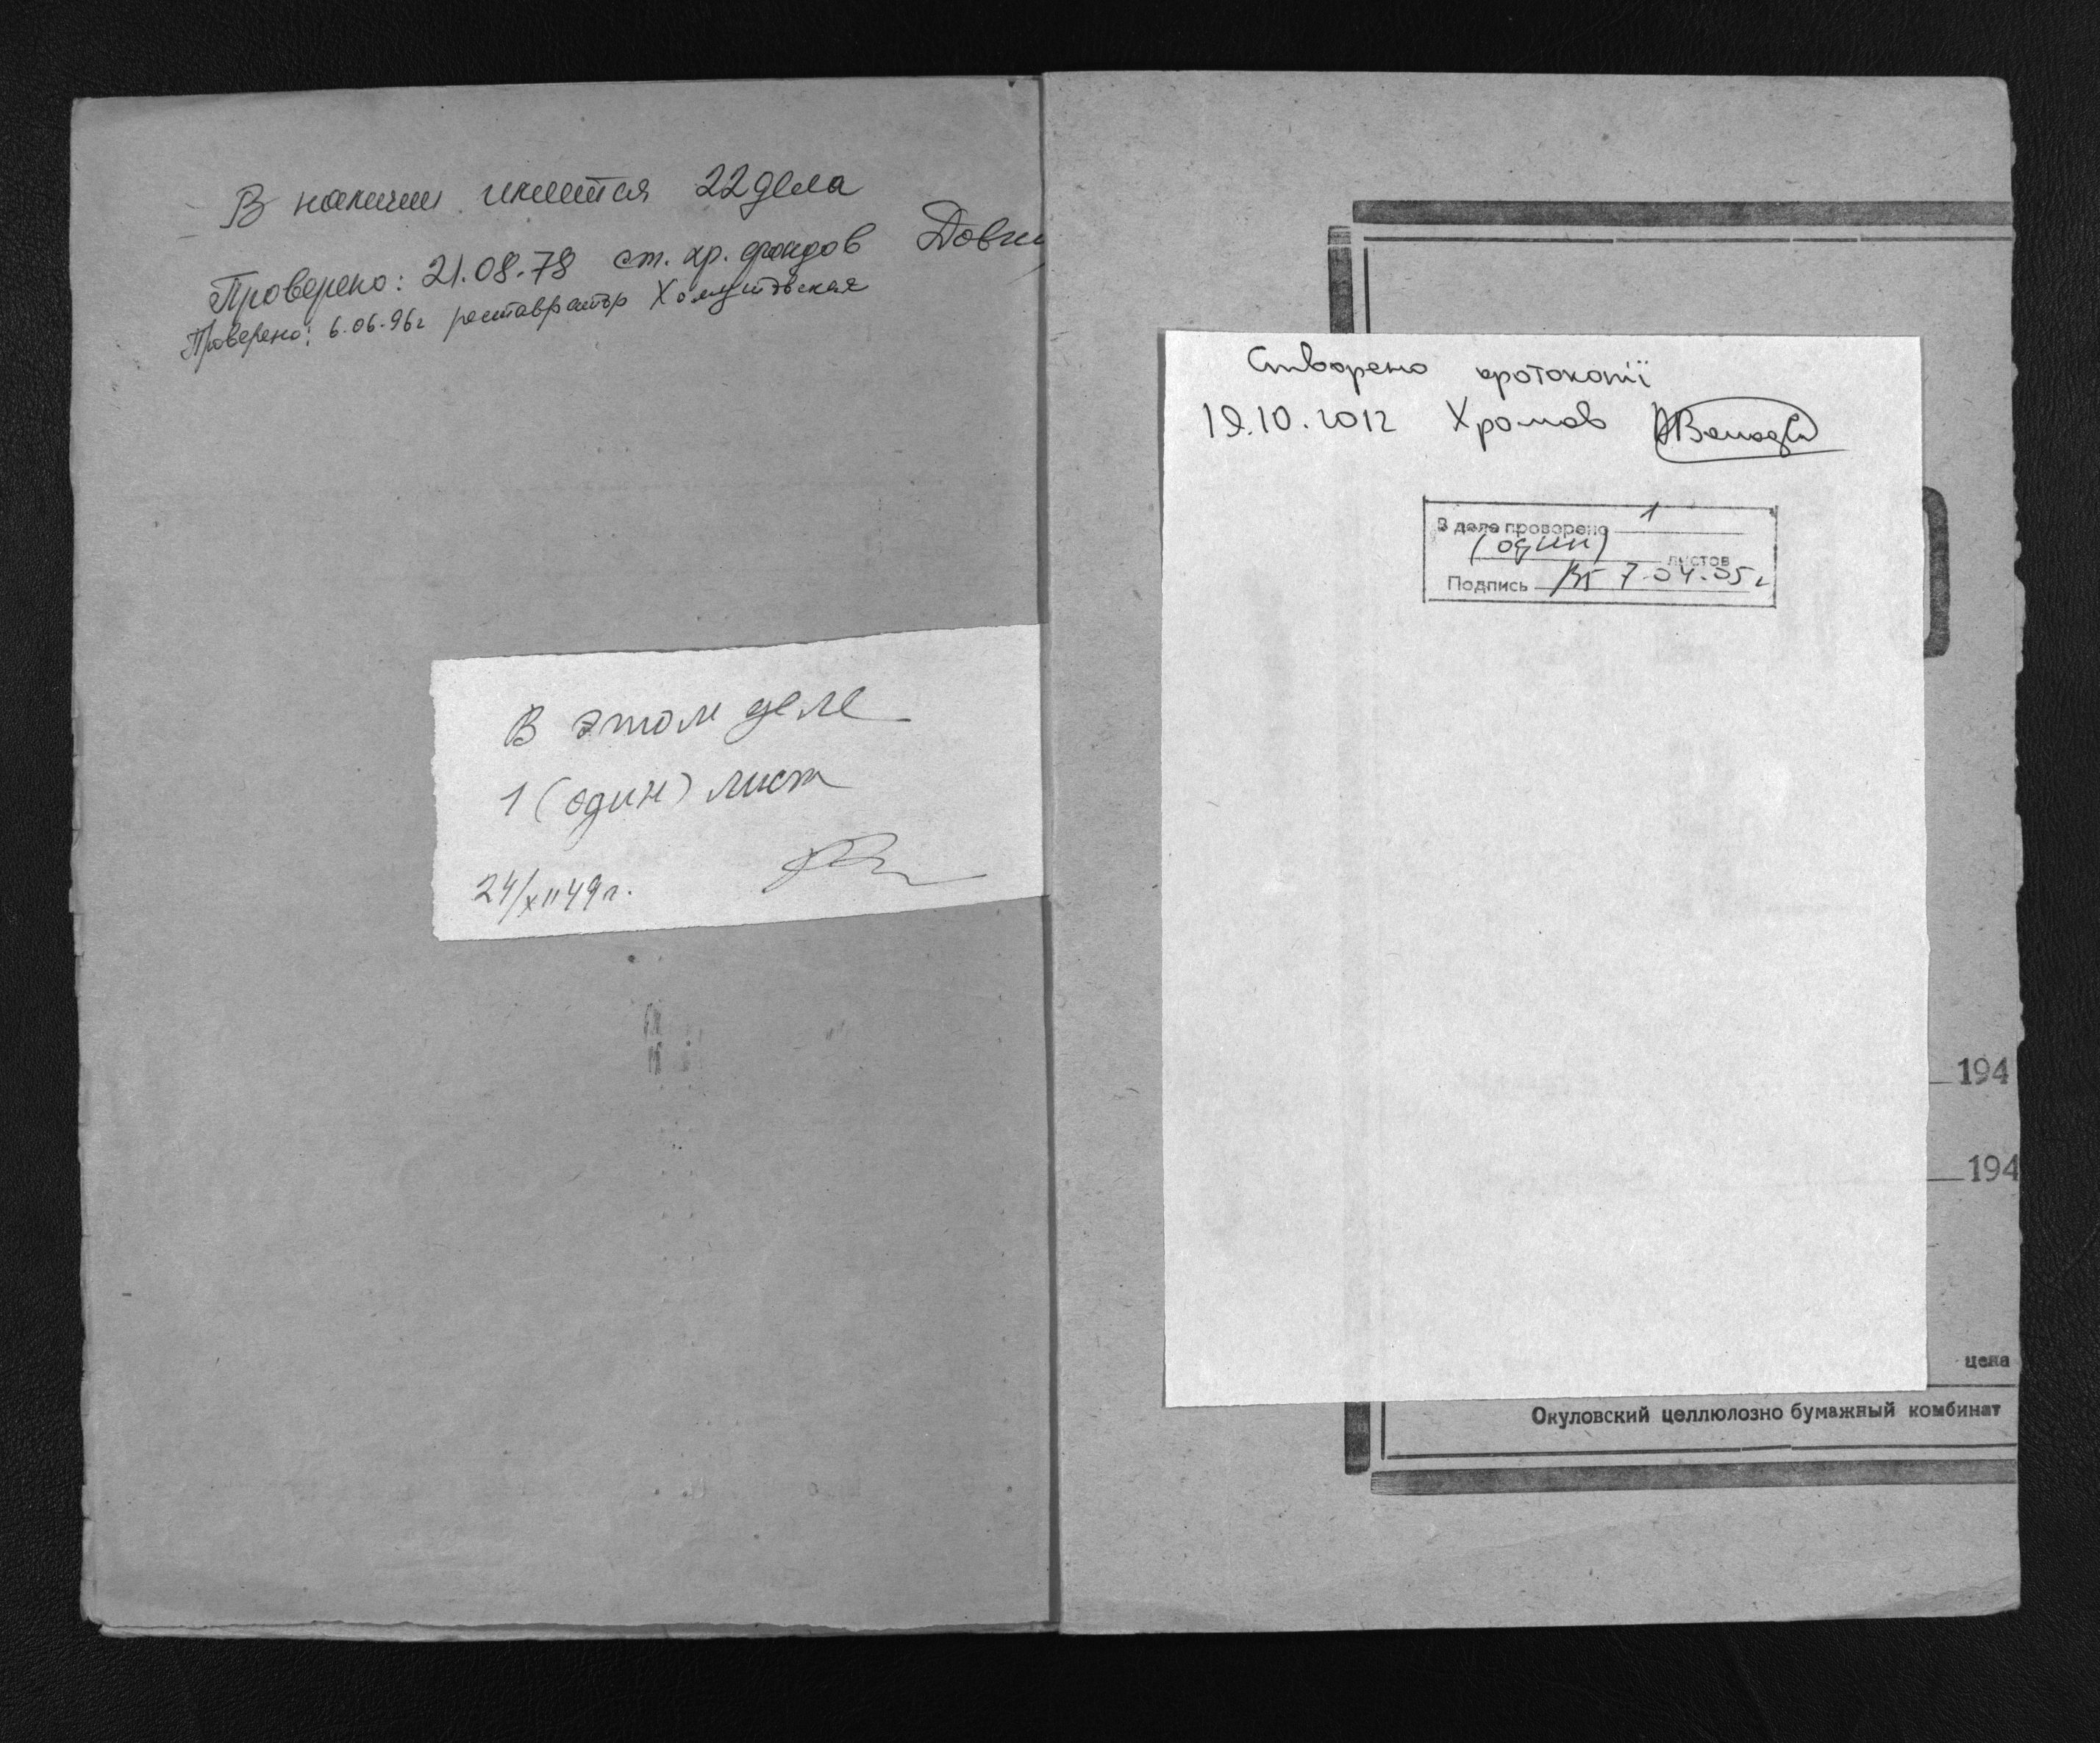 В наличии имеится 22 дела
Проверено: 21.08.78 ст. хр. фондов
Проверено: 6.06.96г реставратор Хомутовская
В этом деле
1 (один) лист
24/XII 49 г.
Створено фотокопії
19.10.2012 Хромов
В деле проверено 1
(один) листов
Подпись 7.04.05г
194
194
цена
Окуловский целлюлозно бумажный комбинат